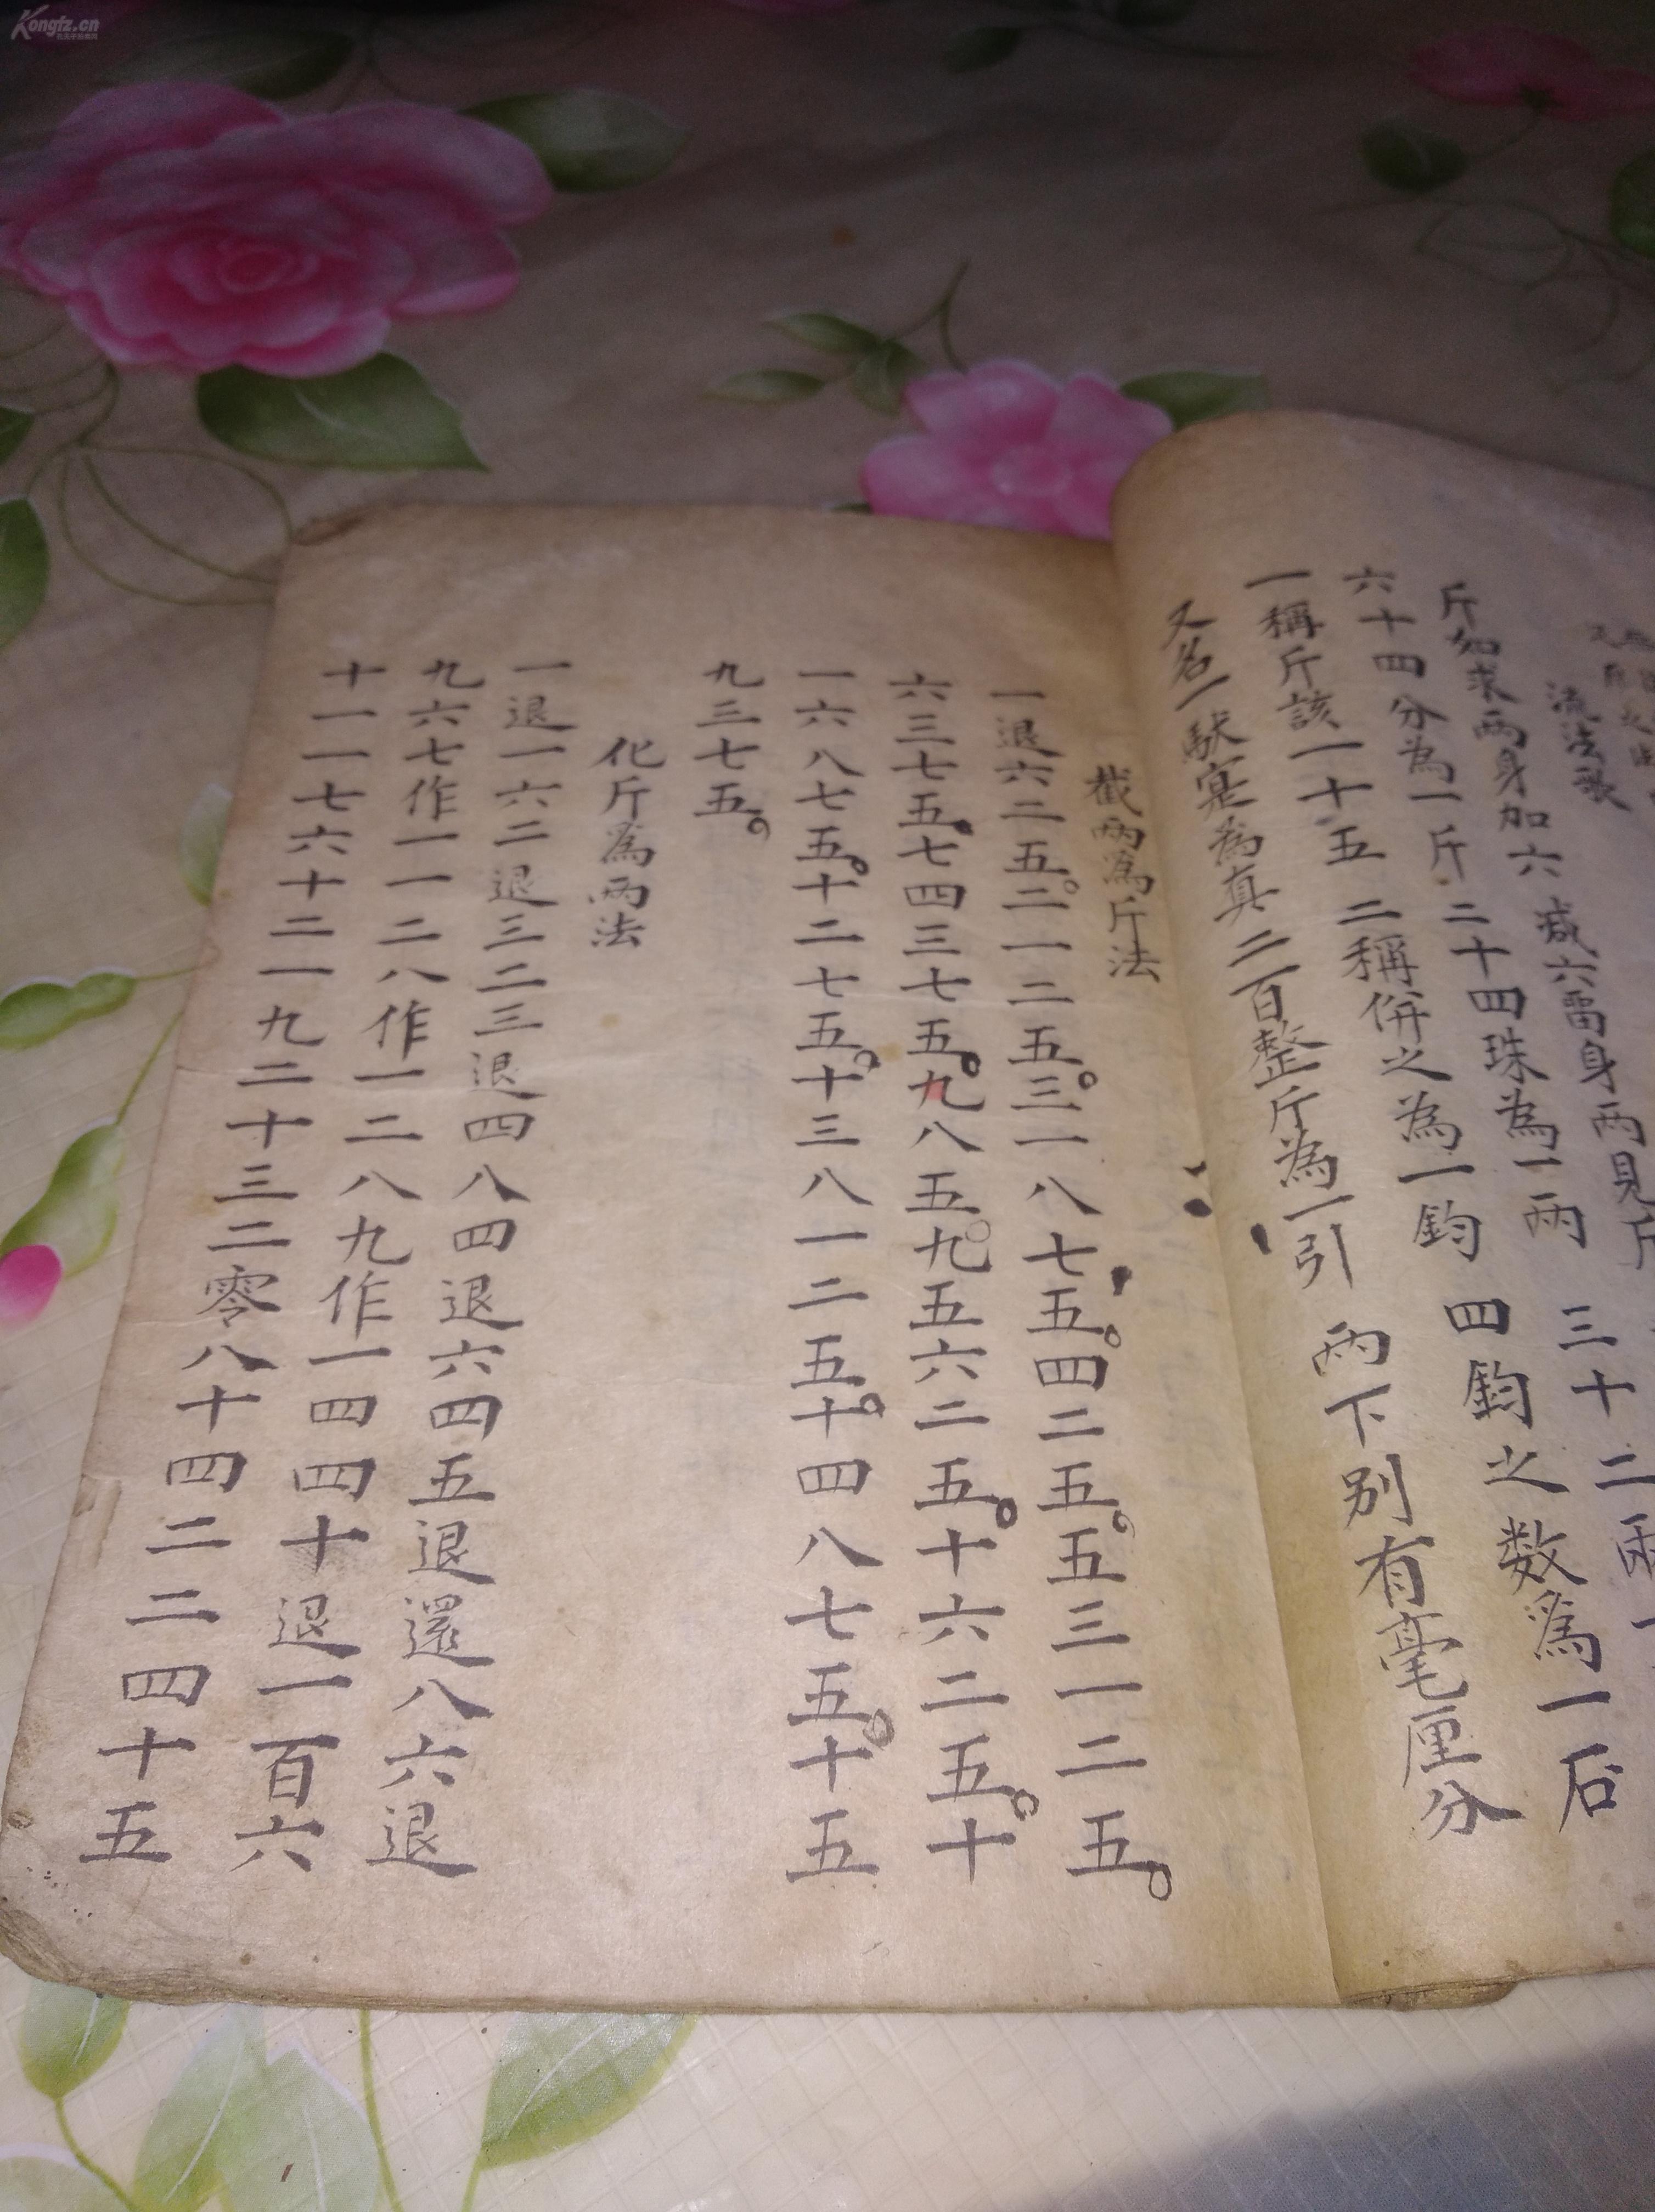 流法歌
斤如求兩身加六 減六畱身兩見斤
六十四分為一斤 二十四珠為一兩 三十二兩
一稱斤該一十五 二稱併之為一鈞 四鈞之数為一石
又名一馱寔為真 二百整斤為一引 兩下別有毫厘分
截兩為斤法
一退六二五。二一二五。三一八七五。四二五。五三一二五。
六三七五。七四三七五。九八五。九五六二五。十六二五。十
一六八七五。十二七五。十三八一二五。十四八七五。十五
九三七五。
化斤為兩法
一退一六二退三二三退四八四退六四五退還八六退
九六七作一一二八作一二八九作一四四十退一百六
十一一七六十二一九二十三二零八十四二二四十五
Kongfz.cn